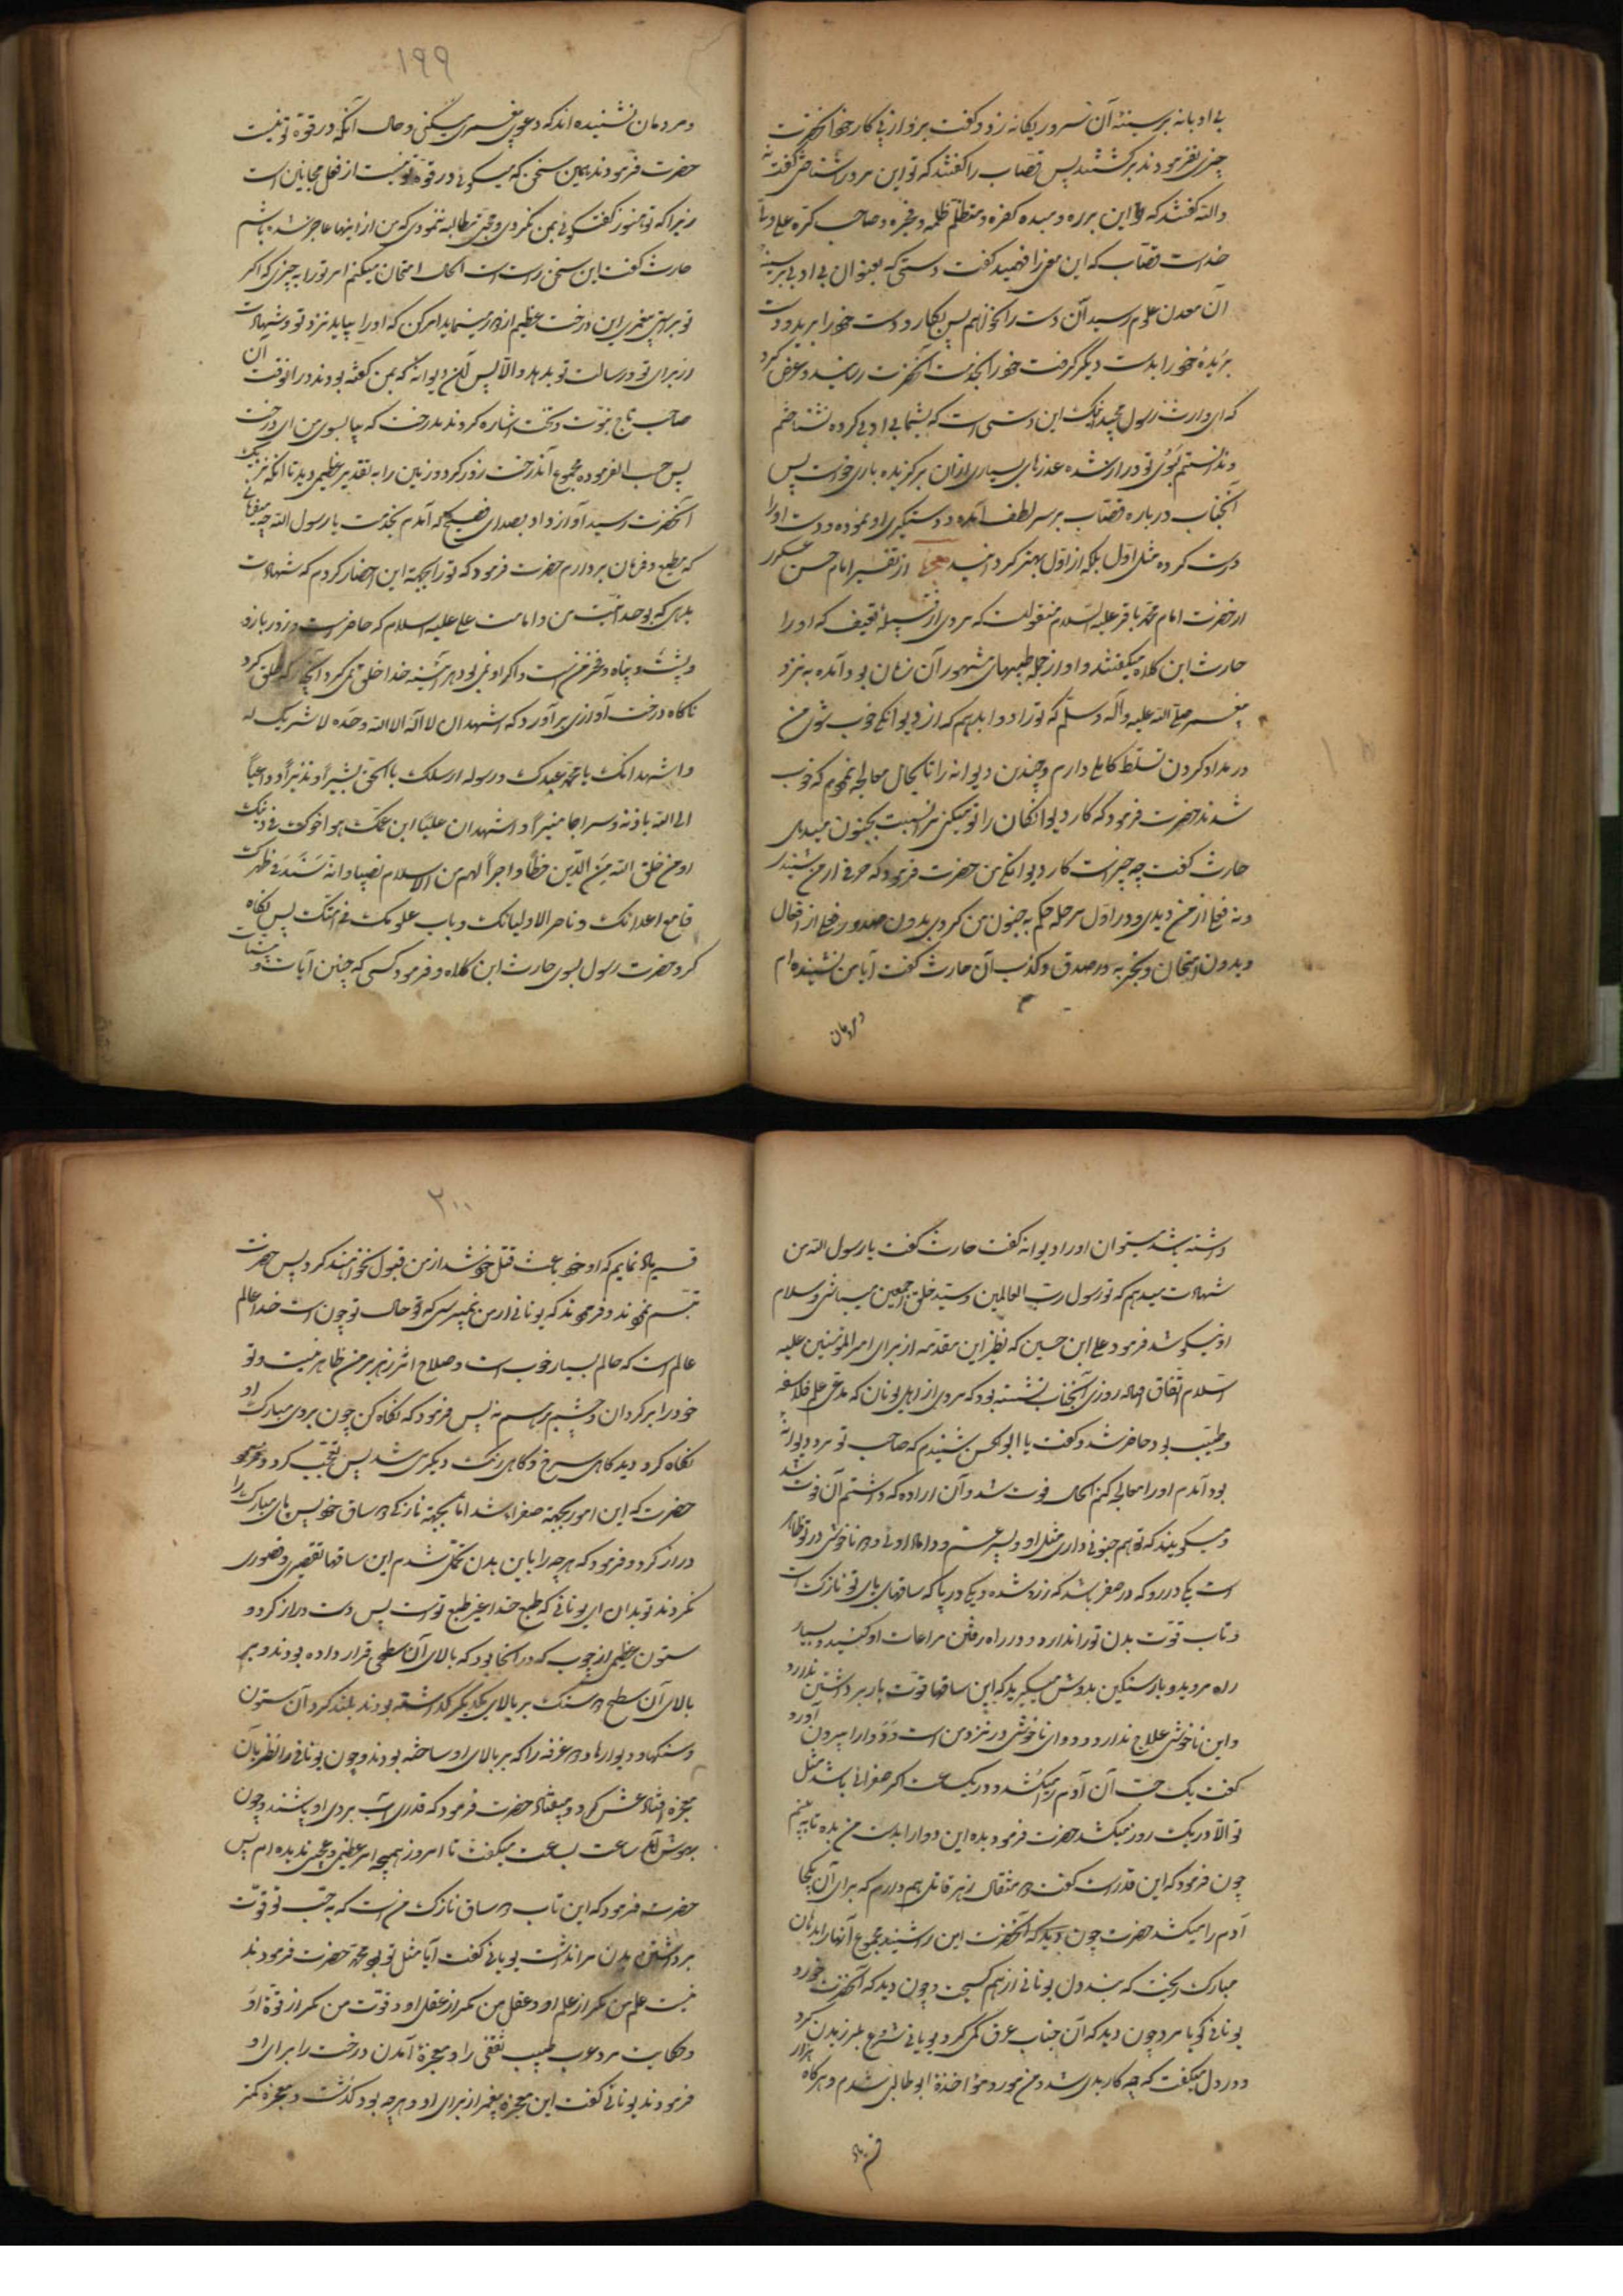 بی ادبانه بر سینهٔ آن سرور یگانه زد و گفت برو از پی کار خود آنحضرت
چیزی نفرمودند برگشتند پس قصاب را گفتند که تو این مرد را شناختی گفت نه
والله گفتند که این برره و مبیده کفره و صاحب کره علی ولی
خداست قصاب که این معنی را فهمید گفت دستی که بعنوان بی ادبی بر سینهٔ
آن معدن علوم رسید آن دست را نخواهم پس بکارد دست خود را برید و دست
بریدهٔ خود را بدست دیگر گرفت خود را بخدمت آنحضرت رسانید و عرض کرد
که ای وارث رسول مجید اینک این دستی است که بشما بی ادبی کرده نشناختم
و ندانستم بسوی تو دراز شده عذرهای بسیاری از آن برگزیده باری خواست پس
آنجناب درباره قصاب بر سر لطف آمده و دستگیری او نموده و دست او را
درست کرده مثل اول بلکه از اول بهتر گردانید معجزه از تفسیر امام حسن عسکری
از حضرت امام محمد باقر علیه السلام منقولست که مردی از قبیلهٔ ثقیف که او را
حارث ابن کلاه میگفتند و او از جمله طبیبهای مشهور آن زمان بود آمده به نزد
پیغمبر صلی الله علیه و آله و سلم که تو را دوا بدهم که از دیوانگی خوب شوی من
در مداد کردن تسلط کاملی دارم و چندین دیوانه را تا بحال معالجه نمودم که خوب
شدند حضرت فرمود که کار دیوانگان را تو میکنی مرا نسبت بجنون میدهی
حارث گفت چه چیز است کار دیوانگی من حضرت فرمود که حرفی از من شنیدی
و نه فعلی از من دیدی و در اول مرحله حکم به جنون من کردی بدون صدور فعلی از افعال
و بدون امتحان و تجربه در صدق و کذب آن حارث گفت آیا من نشنیده ام
و مردمان
۱۹۹
و مردمان نشنیده اند که دعوی پیغمبری میکنی و حال آنکه در قوهٔ تو نیست
حضرت فرمودند همین سخن که میگوئی در قوهٔ تو نیست از فعل مجانین است
زیرا که تو هنوز گفتگوئی بمن نکردی و حجتی مطالبه ننمودی که من از اینها عاجز شده باشم
حارث گفت این سخن راست است الحال امتحان میکنم امر تو را به چیزی که اگر
تو براستی پیغمبری این درخت عظیم از دور مینماید امر کن که او را بیاید نزد تو و شهادت
از برای تو و رسالت تو بدهد والا پس آن دیوانهٔ که بمن گفته بودند در آنوقت آن
صاحب تاج نبوت و تخت اشاره کردند بدرخت که بیا بسوی من ای درخت
پس حسب الفرموده مجموع آندرخت زور کرد و زمین را به تقدیر عظیمی درید تا آنکه نزدیک
آنحضرت رسید آواز داد بصدای فصیح که آمدم بخدمت یا رسول الله چه میفرمائی
که مطیع و فرمان بردارم حضرت فرمود که تو را بجهة این احضار کردم که شهادت
بدهی که بوحدانیت من و امامت علی علیه السلام که حاضر است و زور بازو
و پشت و پناه و فخر منست و اگر او نمی بود هر آینه خدا خلق نمی کرد آنچه را که خلق کرد
ناگاه درخت آوازی بر آورد که اشهد ان لا اله الا الله وحده لا شریک له
و اشهد انک یا محمد عبدک و رسوله ارسلک بالحق بشیراً و نذیراً و داعیاً
الی الله باذنه و سراجا منیراً و اشهد ان علیاً ابن عمک هو اخوک فی دینک
اوفی خلق الله من الدین حظاً و اجراً لهم من الاسلام نصیبا و انه سندک و ظهرک
قامع اعدائک و ناصر الاولیائک و باب علومک فی امتک پس نگاه
کرد حضرت رسول بسوی حارث ابن کلاه و فرمود کسی که چنین آیات و بینات
داشته باشد میتوان او را دیوانه گفت حارث گفت یا رسول الله من
شهادت میدهم که تو رسول رب العالمین و سید خلق اجمعین میباشی و سلام
او نیکو شد فرمود علی ابن حسین که نظیر این مقدمه از برای امیر المؤمنین علیه
السلام اتفاق افتاد روزی آنجناب نشسته بود که مردی از اهل یونان که مدعی علم فلاسفه
و طبیب بود حاضر شد و گفت یا ابو الحسن شنیدم که صاحب تو مرد دیوانهٔ
بود آمدم او را معالجه کنم الحال فوت شد و آن اراده که داشتم آن فوت شد
و میگویند که تو هم جنونی داری مثل او و پسر عم و داماد اوئی و دو ناخوشی در تو ظاهر
است یکی در رو که در صفر باشد که زرد شده و یکی در پا که ساقهای پای تو نازک است
و تاب قوت بدن تو را ندارد و در راه رفتن مراعات او کنید و بسیار
راه مروید و بار سنگین بدوش مگیرید که این ساقها قوت بار برداشتن ندارد
و این ناخوشی علاج ندارد و دوای ناخوشی در نزد من است و دوا را بیرون آورد
گفت یک حب آن آدم را میکشد و در یک ساعت اگر صفرائی باشد مثل
تو الا در یک روز میکشد حضرت فرمود بده این دوا را بدست من بده تا ببینم
چون فرمود که این قدر است گفت دو مثقال زهر قاتل هم دارم که برای آن یکجا
آدم را میکشد حضرت چون دید که آنحضرت این را شنید مجموع آنها را بدهان
مبارک ریخت که بند دل یونانی از هم گسیخت و چون دید که آنحضرت خورد
یونانی گویا مرد چون دید که آن جناب عرق کمی کرد یونانی شروع بلرزیدن کرد
و در دل میگفت که چه کار بدی شد و من مورد مؤاخذهٔ ابو طالبی شدم و هر گاه هزار
قسم یاد
۲۰۰
قسم یاد نمایم که او خود باعث قتل خود شد از من قبول نخواهند کرد پس حضرت
تبسم نمودند و فرمودند که یونانی از من نمیپرسی که تو حال تو چون است خدا عالم
عالم است که حالم بسیار خوب است و صلاح اثر زهر بر من ظاهر نیست و تو
خود را برگردان و چشم بر هم نه پس فرمود که نگاه کن چون بروی مبارک او
نگاه کرد دید گاهی سرخ و گاهی رنگ دیگری شد پس تعجب کرد و فرمود
حضرت که این امور بجهة صفرا باشد اما بجهة نازکی دو ساق خود پس پای مبارک را
دراز کرد و فرمود که هر چه را باین بدن تحمل شدم این ساقها تقصیر و قصوری
نکردند تو بدان ای یونانی که طبع خدا غیر طبع تو است پس دست دراز کرد و
ستون عظیمی از چوب که در آنجا بود که بالای آن سطحی قرار داده بودند و بر
بالای آن سطح دو سنگ بر بالای یکدیگر گذاشته بودند بلند کرد آن ستون
و سنگها و دیوارها و دو غرفه را که بر بالای او ساخته بودند و چون یونانی را نظر بآن
معجزه افتاد غش کرد و بیفتاد حضرت فرمود که قدری آب بروی او پاشند و چون
بهوش آمد ساعت بساعت میگفت تا امروز همچه امر عظیمی و عجیبی ندیده ام پس
حضرت فرمود که این تاب دو ساق نازک من است که بحسب تو قوت
برداشتن بدن مرا نداشت یونانی گفت آیا مثل تو بود محمد حضرت فرمودند
نیست علم من مگر از علم او و عقل من مگر از عقل او و قوت من مگر از قوهٔ او
و حکایت مرد عرب طبیب ثقفی را و معجزهٔ آمدن درخت را برای او
فرمودند یونانی گفت این معجزهٔ پیغمبر از برای او و هر چه بود گذشت و معجزه